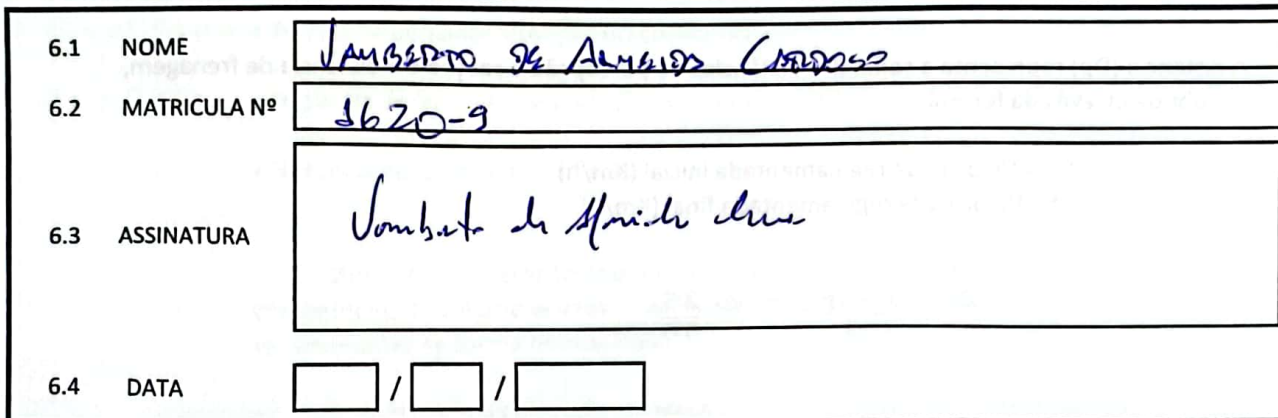 6.1 NOME VAMBERTO DE ALMEIDA CARDOSO
6.2 MATRICULA Nº 1620-9
6.3 ASSINATURA Vamberto de Almeida
6.4 DATA / /